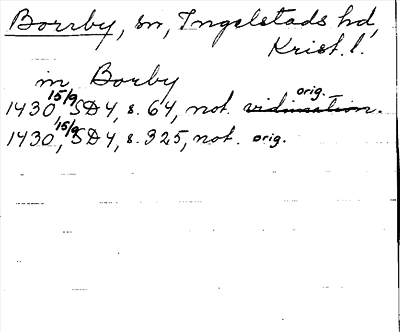 Borrby, sn, Ingelstads hd,
Krist. l.
in Borby
1430 15/9 SD 4, s. 64, not. vidimation. orig.
1430, 15/9 SD 4, s. 325, not. orig.